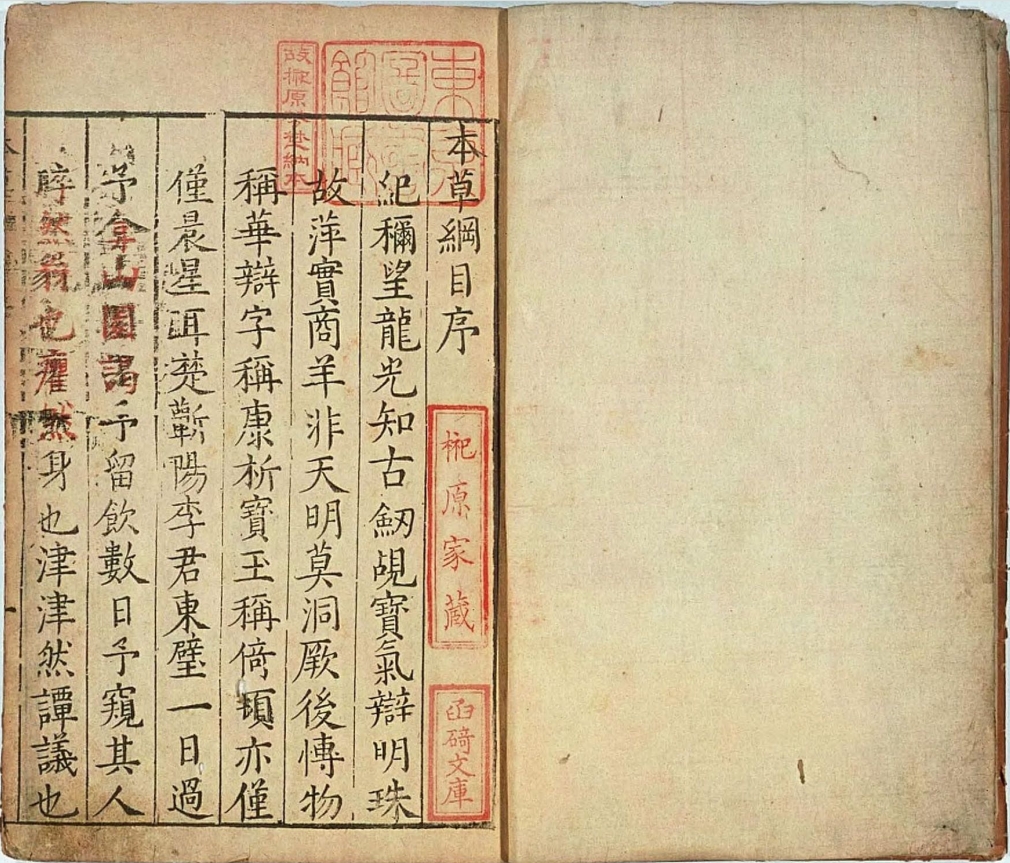 本草綱目序
紀稱望龍光知古劒覘寶氣辯明珠
故萍實商羊非天明莫洞厥後愽物
稱華辯字稱康析寶玉稱倚頓亦僅
僅晨星耳楚蘄陽李君東璧一日過
予弇山園謁予留飲數日予窺其人
睟然貌也癯然身也津津然譚議也
故榊原芳埜納本
榊原家藏
函碕文庫